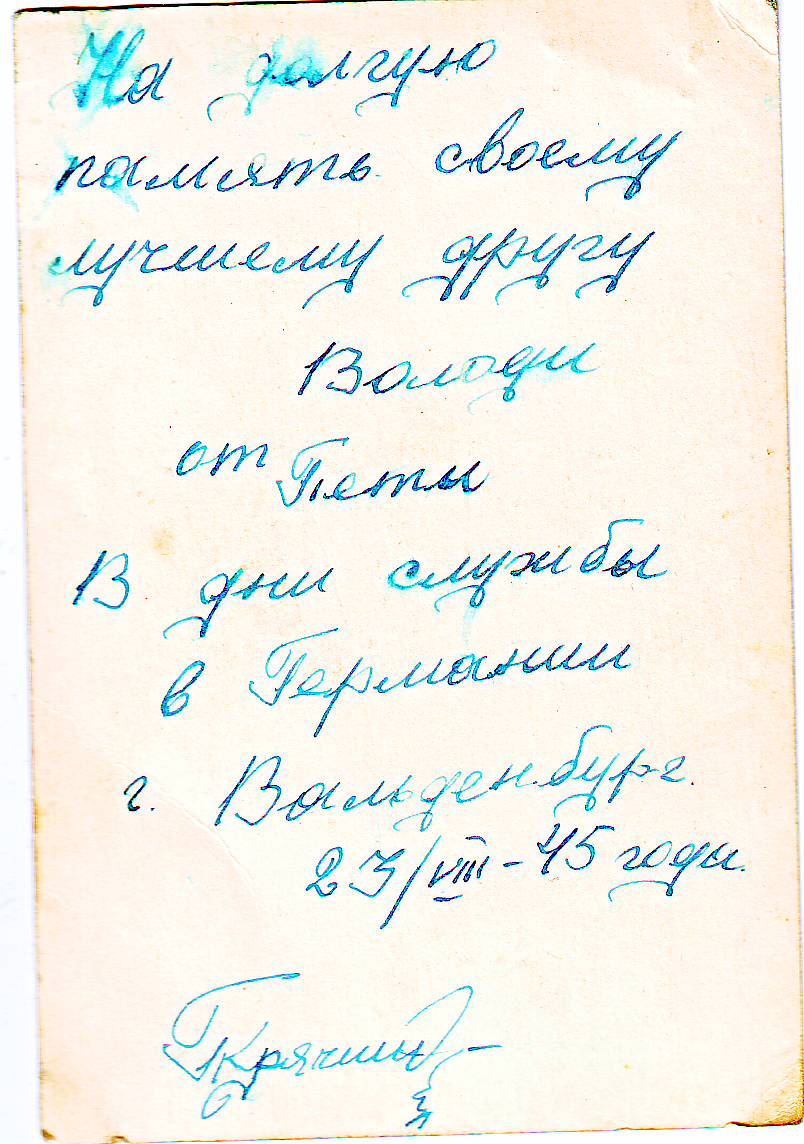 На долгую
память своему
лучшему другу
Володи
от Пети
В дни службы
в Германии
г. Вальденбург
23/VIII - 45 года.